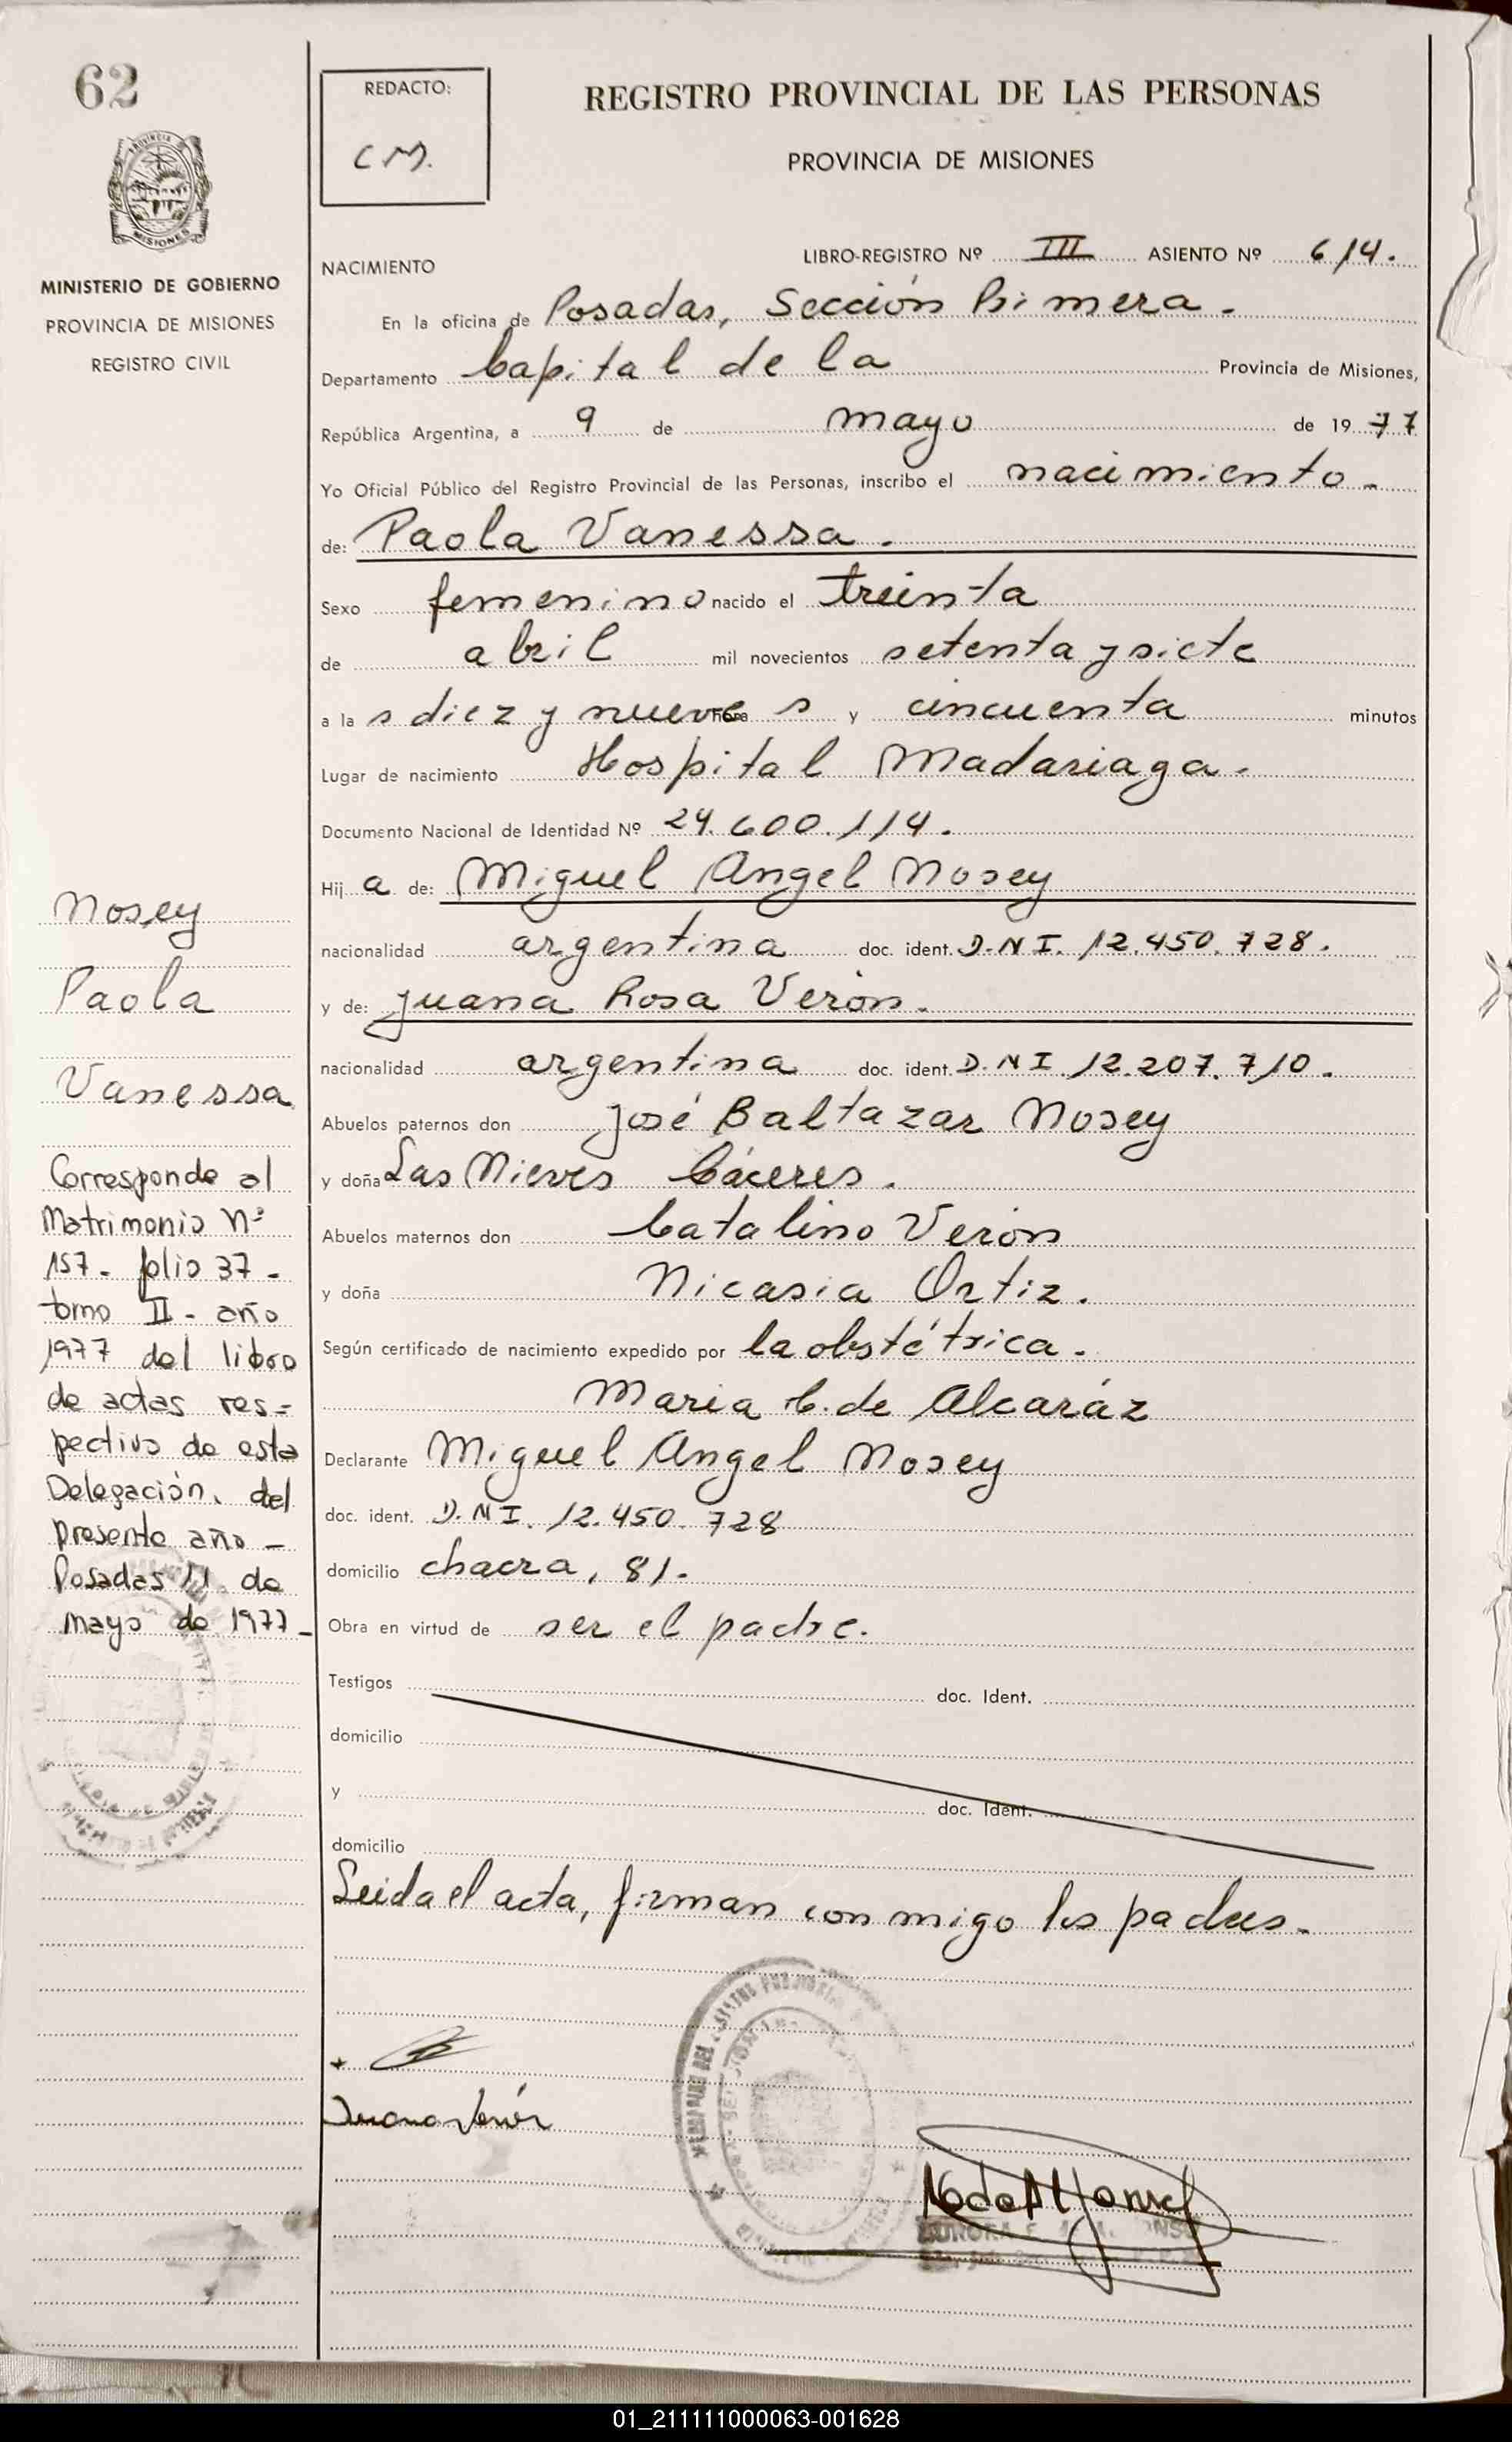 62
REDACTO:
C M.
REGISTRO PROVINCIAL DE LAS PERSONAS
PROVINCIA DE MISIONES
MINISTERIO DE GOBIERNO
PROVINCIA DE MISIONES
REGISTRO CIVIL
NACIMIENTO
LIBRO-REGISTRO Nº III ASIENTO Nº 614.
En la oficina de Posadas, Sección Primera.
Departamento Capital de la Provincia de Misiones,
República Argentina, a 9 de mayo de 1977
Yo Oficial Público del Registro Provincial de las Personas, inscribo el nacimiento.
de: Paola Vanessa.
Sexo femenino nacido el treinta
de abril mil novecientos setenta y siete
a la s diez y nueve hora s y cincuenta minutos
Lugar de nacimiento Hospital Madariaga.
Documento Nacional de Identidad Nº 24.600.114.
Hij a de: Miguel Angel Nosey
nacionalidad argentina doc. ident. D.N I. 12.450.728.
y de: Juana Rosa Verón.
nacionalidad argentina doc. ident. D.N I 12.207.710.
Abuelos paternos don José Baltazar Nosey
y doña Las Nieves Cáceres.
Abuelos maternos don Catalino Verón
y doña Nicasia Ortiz.
Según certificado de nacimiento expedido por la obstétrica.
Maria C. de Alcaráz
Declarante Miguel Angel Nosey
doc. ident. D.N I. 12.450.728
domicilio chacra, 81.
Obra en virtud de ser el padre.
Testigos doc. Ident.
domicilio
y doc. Ident.
domicilio
Leida el acta, firman conmigo los padres.
Juana Verón
Nosey
Paola
Vanessa
Corresponde al
Matrimonio Nº
157 - folio 37 -
tomo II - año
1977 del libro
de actas res=
pectivo de esta
Delegación, del
presente año -
Posadas 11 de
mayo de 1977 -
01_211111000063-001628